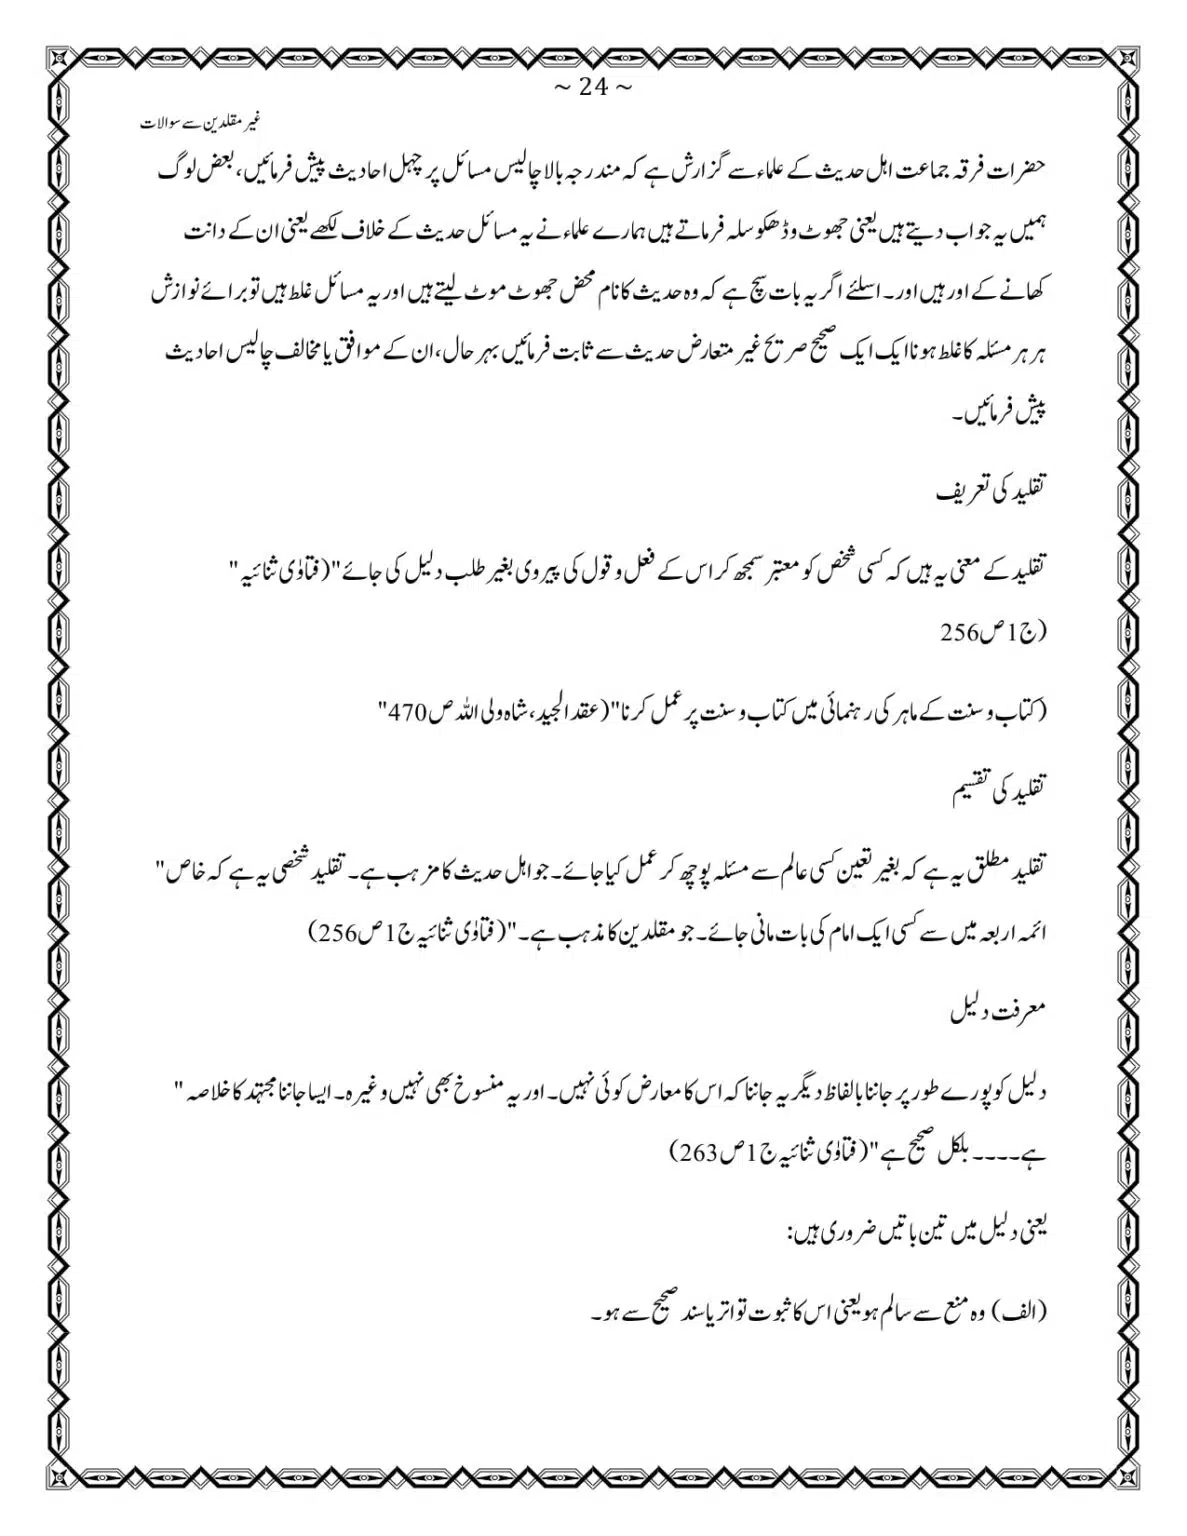 ~ 24 ~
غیر مقلدین سے سوالات
حضرات فرقہ جماعت اہل حدیث کے علماء سے گزارش ہے کہ مندرجہ بالا چالیس مسائل پر چہل احادیث پیش فرمائیں، بعض لوگ
ہمیں یہ جواب دیتے ہیں یعنی جھوٹ و ڈھکوسلہ فرماتے ہیں ہمارے علماء نے یہ مسائل حدیث کے خلاف لکھے یعنی ان کے دانت
کھانے کے اور ہیں اور۔ اسلئے اگر یہ بات سچ ہے کہ وہ حدیث کا نام محض جھوٹ موٹ لیتے ہیں اور یہ مسائل غلط ہیں تو برائے نوازش
ہر ہر مسئلہ کا غلط ہونا ایک ایک صحیح صریح غیر متعارض حدیث سے ثابت فرمائیں بہر حال، ان کے موافق یا مخالف چالیس احادیث
پیش فرمائیں۔
تقلید کی تعریف
تقلید کے معنی یہ ہیں کہ کسی شخص کو معتبر سمجھ کر اس کے فعل و قول کی پیروی بغیر طلب دلیل کی جائے"( فتاوٰی ثنائیہ "
(ج1ص256
(کتاب و سنت کے ماہر کی رہنمائی میں کتاب و سنت پر عمل کرنا"( عقد الجید، شاہ ولی اللہ ص470"
تقلید کی تقسیم
تقلید مطلق یہ ہے کہ بغیر تعین کسی عالم سے مسئلہ پوچھ کر عمل کیا جائے۔ جو اہل حدیث کا مزہب ہے۔ تقلید شخصی یہ ہے کہ خاص"
ائمہ اربعہ میں سے کسی ایک امام کی بات مانی جائے۔ جو مقلدین کا مذہب ہے۔"( فتاوٰی ثنائیہ ج1ص256)
معرفت دلیل
دلیل کو پورے طور پر جاننا بالفاظ دیگر یہ جاننا کہ اس کا معارض کوئی نہیں۔ اور یہ منسوخ بھی نہیں وغیرہ۔ ایسا جاننا مجتہد کا خلاصہ "
ہے۔۔۔۔ بلکل صحیح ہے"( فتاوٰی ثنائیہ ج1ص263)
یعنی دلیل میں تین باتیں ضروری ہیں:
(الف) وہ منع سے سالم ہو یعنی اس کا ثبوت تواتر یا سند صحیح سے ہو۔